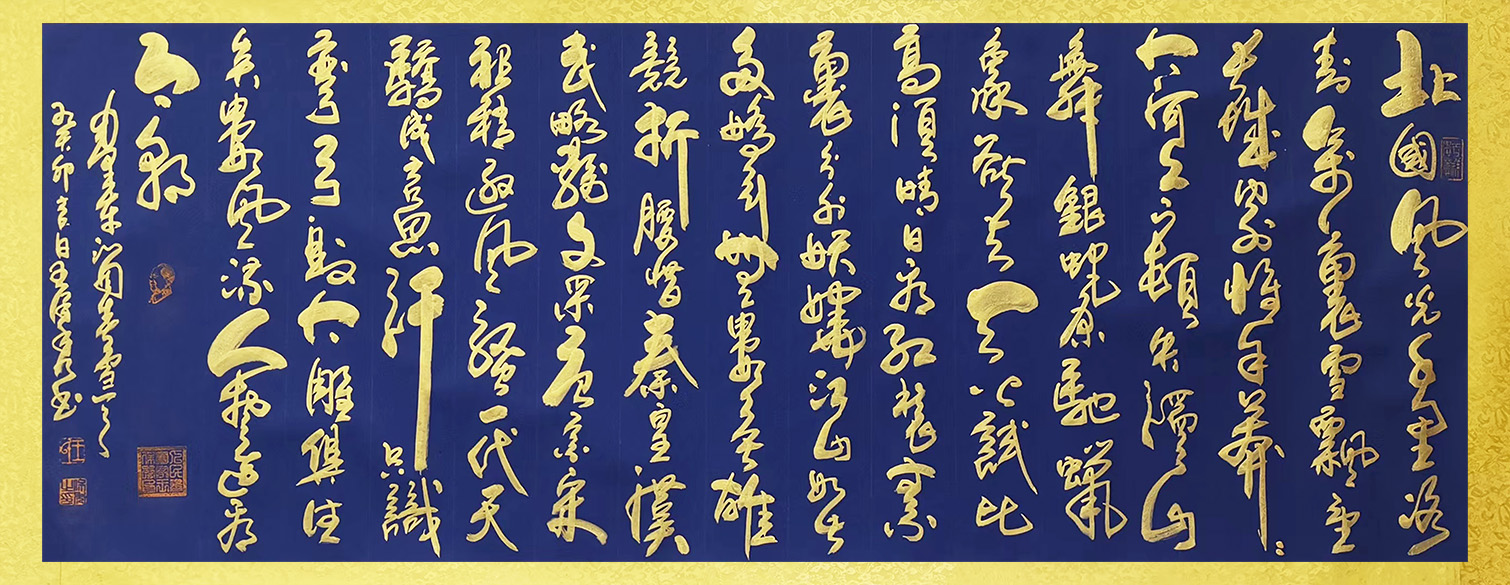 北國風光千里冰
封萬裏雪飄望
長城內外惟餘莽〻
大河上下頓失滔〻山
舞銀蛇原馳蠟
象欲與天公試比
高須晴日看紅裝素
裹分外妖嬈江山如此
多嬌引無數英雄
競折腰惜秦皇漢
武略輸文采唐宗宋
祖稍遜風騷一代天
驕成吉思汗只識
彎弓射大雕俱往
矣數風流人物還看
今朝
毛澤東沁園春雪
癸卯吉日王